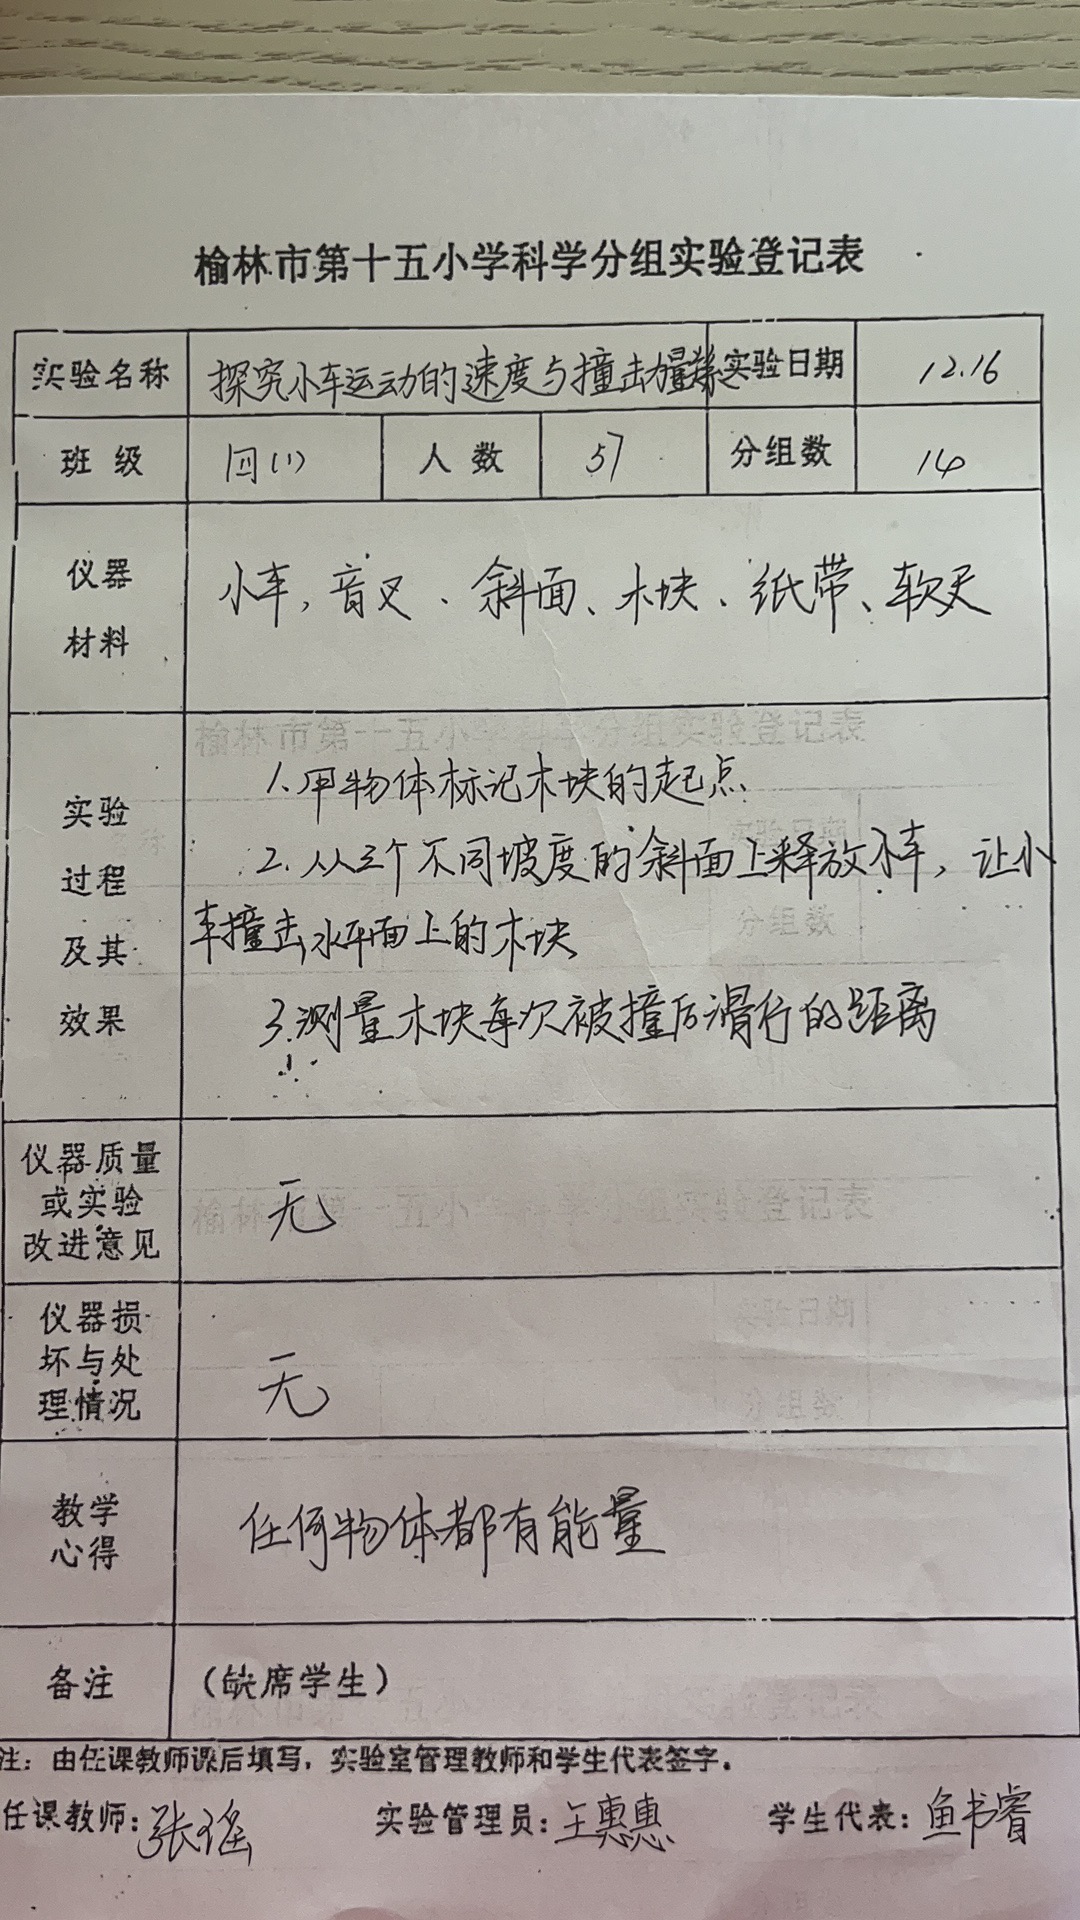 榆林市第十五小学科学分组实验登记表
实验名称 探究小车运动的速度与撞击能量 实验日期 12.16
班级 四(1) 人数 57 分组数 14
仪器
材料
小车，音叉、斜面、木块、纸带、软天
实验
过程
及其
效果
1.用物体标记木块的起点
2.从三个不同坡度的斜面上释放小车，让小
车撞击水平面上的木块
3.测量木块每次被撞后滑行的距离
仪器质量
或实验
改进意见
无
仪器损
坏与处
理情况
无
教学
心得
任何物体都有能量
备注 （缺席学生）
注：由任课教师课后填写，实验室管理教师和学生代表签字。
任课教师：张瑶 实验管理员：王惠惠 学生代表：鱼书睿